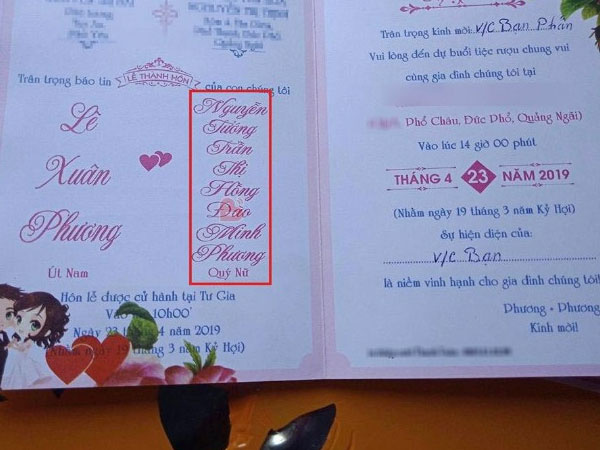 Trân trọng báo tin LỄ THÀNH HÔN của con chúng tôi
Lê
Xuân
Phương
Út Nam
Nguyễn
Tường
Trần
Thị
Hồng
Đào
Minh
Phương
Quý Nữ
Hôn lễ được cử hành tại Tư Gia
Vào 10h00'
Ngày 23 4 năm 2019
(Nhằm ngày 19 tháng 3 năm Kỷ Hợi)
Trân trọng kính mời: V/C Bạn Phấn
Vui lòng đến dự buổi tiệc rượu chung vui
cùng gia đình chúng tôi tại
Phổ Châu, Đức Phổ, Quảng Ngãi
Vào lúc 14 giờ 00 phút
THÁNG 4 23 NĂM 2019
(Nhằm ngày 19 tháng 3 năm Kỷ Hợi)
Sự hiện diện của:
V/C Bạn
là niềm vinh hạnh cho gia đình chúng tôi!
Phương - Phương
Kính mời!